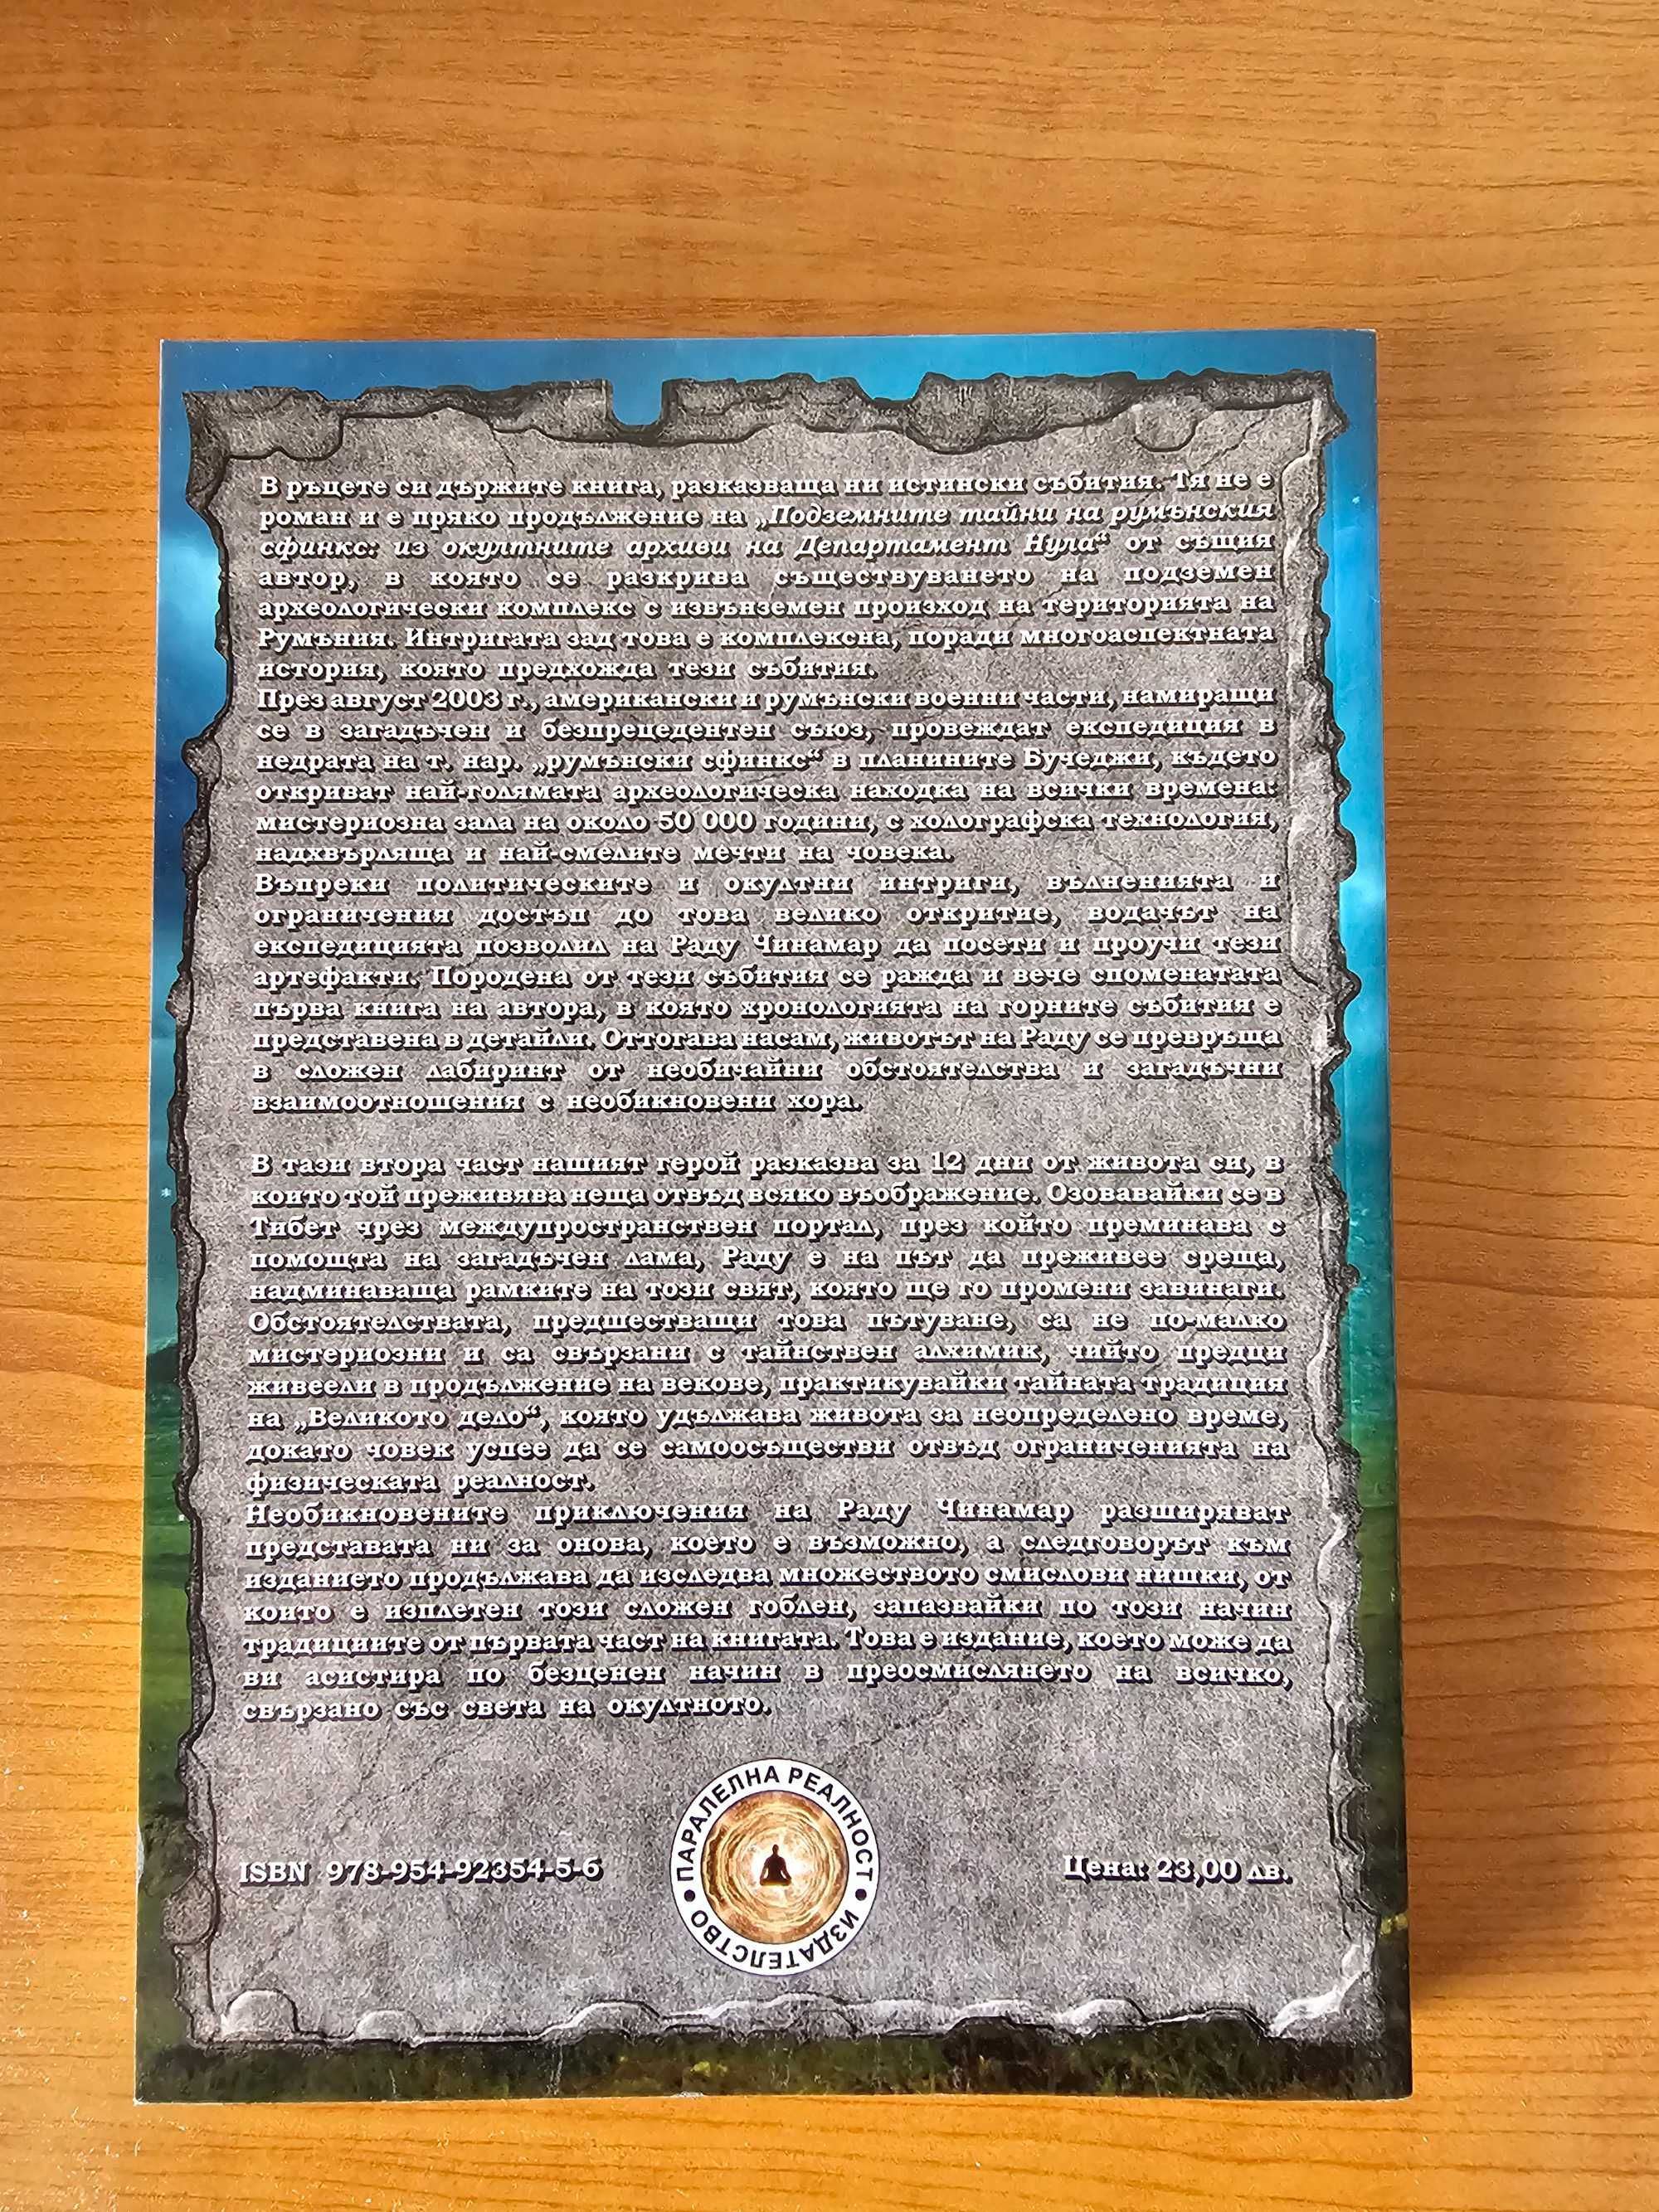 В ръцете си държите книга, разказваща ни истински събития. Тя не е
роман и е пряко продължение на „Подземните тайни на румънския
сфинкс: из окултните архиви на Департамент Нула“ от същия
автор, в която се разкрива съществуването на подземен
археологически комплекс с извънземен произход на територията на
Румъния. Интригата зад това е комплексна, поради многоаспектната
история, която предхожда тези събития.
През август 2003 г., американски и румънски военни части, намиращи
се в загадъчен и безпрецедентен съюз, провеждат експедиция в
недрата на т. нар. „румънски сфинкс“ в планините Бучеджи, където
откриват най-голямата археологическа находка на всички времена:
мистериозна зала на около 50 000 години, с холографска технология,
надхвърляща и най-смелите мечти на човека.
Въпреки политическите и окултни интриги, вълненията и
ограничения достъп до това велико откритие, водачът на
експедицията позволил на Раду Чинамар да посети и проучи тези
артефакти. Породена от тези събития се ражда и вече споменатата
първа книга на автора, в която хронологията на горните събития е
представена в детайли. Оттогава насам, животът на Раду се превръща
в сложен лабиринт от необичайни обстоятелства и загадъчни
взаимоотношения с необикновени хора.
В тази втора част нашият герой разказва за 12 дни от живота си, в
които той преживява неща отвъд всяко въображение. Озовавайки се в
Тибет чрез междупространствен портал, през който преминава с
помощта на загадъчен лама, Раду е на път да преживее среща,
надминаваща рамките на този свят, която ще го промени завинаги.
Обстоятелствата, предшестващи това пътуване, са не по-малко
мистериозни и са свързани с тайнствен алхимик, чийто предци
живеели в продължение на векове, практикувайки тайната традиция
на „Великото дело“, която удължава живота за неопределено време,
докато човек успее да се самоосъществи отвъд ограниченията на
физическата реалност.
Необикновените приключения на Раду Чинамар разширяват
представата ни за онова, което е възможно, а следговорът към
изданието продължава да изследва множеството смислови нишки, от
които е изплетен този сложен гоблен, запазвайки по този начин
традициите от първата част на книгата. Това е издание, което може да
ви асистира по безценен начин в преосмислянето на всичко,
свързано със света на окултното.
ISBN 978-954-92354-5-6
ПАРАЛЕЛНА РЕАЛНОСТ • ИЗДАТЕЛСТВО •
Цена: 23,00 лв.